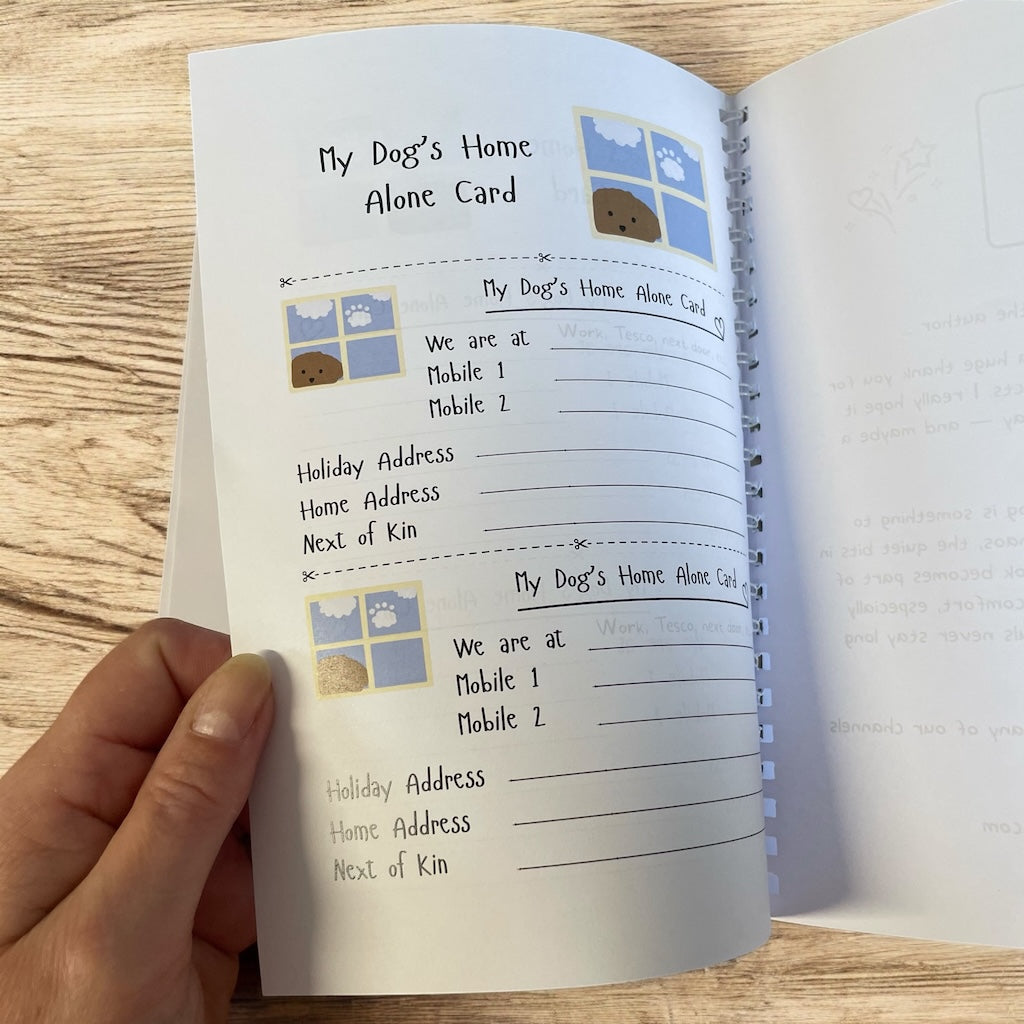 My Dog's Home
Alone Card
My Dog's Home Alone Card
We are at
Work, Tesco, next door,
Mobile 1
Mobile 2
Holiday Address
Home Address
Next of Kin
My Dog's Home Alone Card
We are at
Work, Tesco, next door,
Mobile 1
Mobile 2
Holiday Address
Home Address
Next of Kin
the author
a huge thank you for
I really hope it
— and maybe a
is something to
the quiet bits in
becomes part of
comfort, especially
never stay long
any of our channels
com